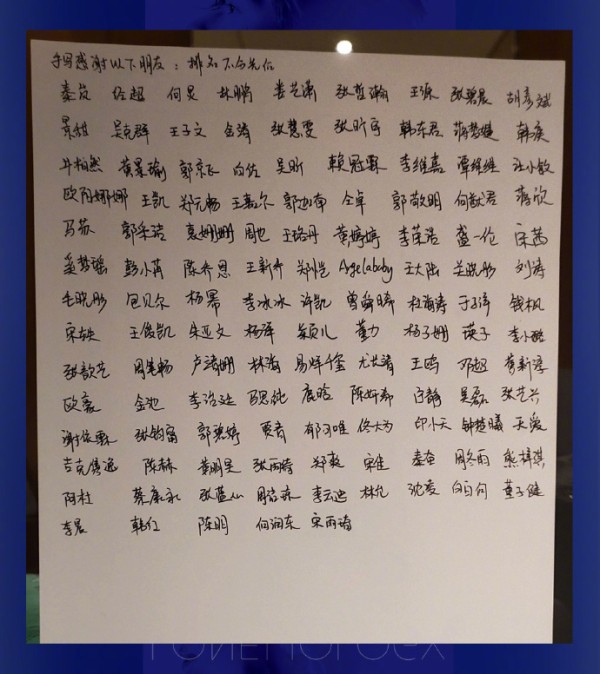 手写感谢以下朋友：排名不分先后
秦岚 任超 何炅 林鹏 娄艺潇 张哲瀚 王源 张碧晨 胡彦斌
景甜 吴克群 王子文 金涛 张慧雯 张昕宇 韩东君 蒋梦婕 韩庚
井柏然 黄景瑜 郭京飞 白佐 吴昕 赖冠霖 李维嘉 谭维维 汪小敏
欧阳娜娜 王凯 郑元畅 王嘉尔 郭迦南 仝卓 郭敬明 何猷君 蒋欣
马苏 郭采洁 袁姗姗 周也 王珞丹 黄婷婷 李荣浩 盛一伦 宋茜
奚梦瑶 彭小苒 陈乔恩 王新乔 郑恺 Angelababy 王大陆 关晓彤 刘涛
毛晓彤 包贝尔 杨幂 李冰冰 许凯 曾舜晞 杜海涛 于子洋 钱枫
宋轶 王俊凯 朱亚文 杨洋 颖儿 董力 杨子姗 瑛子 李小璐
张歆艺 周笔畅 卢靖姗 林海 易烊千玺 尤长靖 王鸥 邓超 蔡新泽
欧豪 金池 李治廷 马思纯 鹿晗 陈妍希 白静 吴磊 张艺兴
谢依霖 张钧甯 郭碧婷 贾青 郁可唯 佟大为 印小天 钟楚曦 天爱
吉克隽逸 陈赫 黄明昊 张雨绮 郑爽 宋佳 秦奋 周冬雨 熊梓淇
阿杜 蔡康永 张蓝心 周洁琼 李云迪 林允 沈凌 白百何 黄子健
李晨 韩红 陈明 何润东 宋雨琦